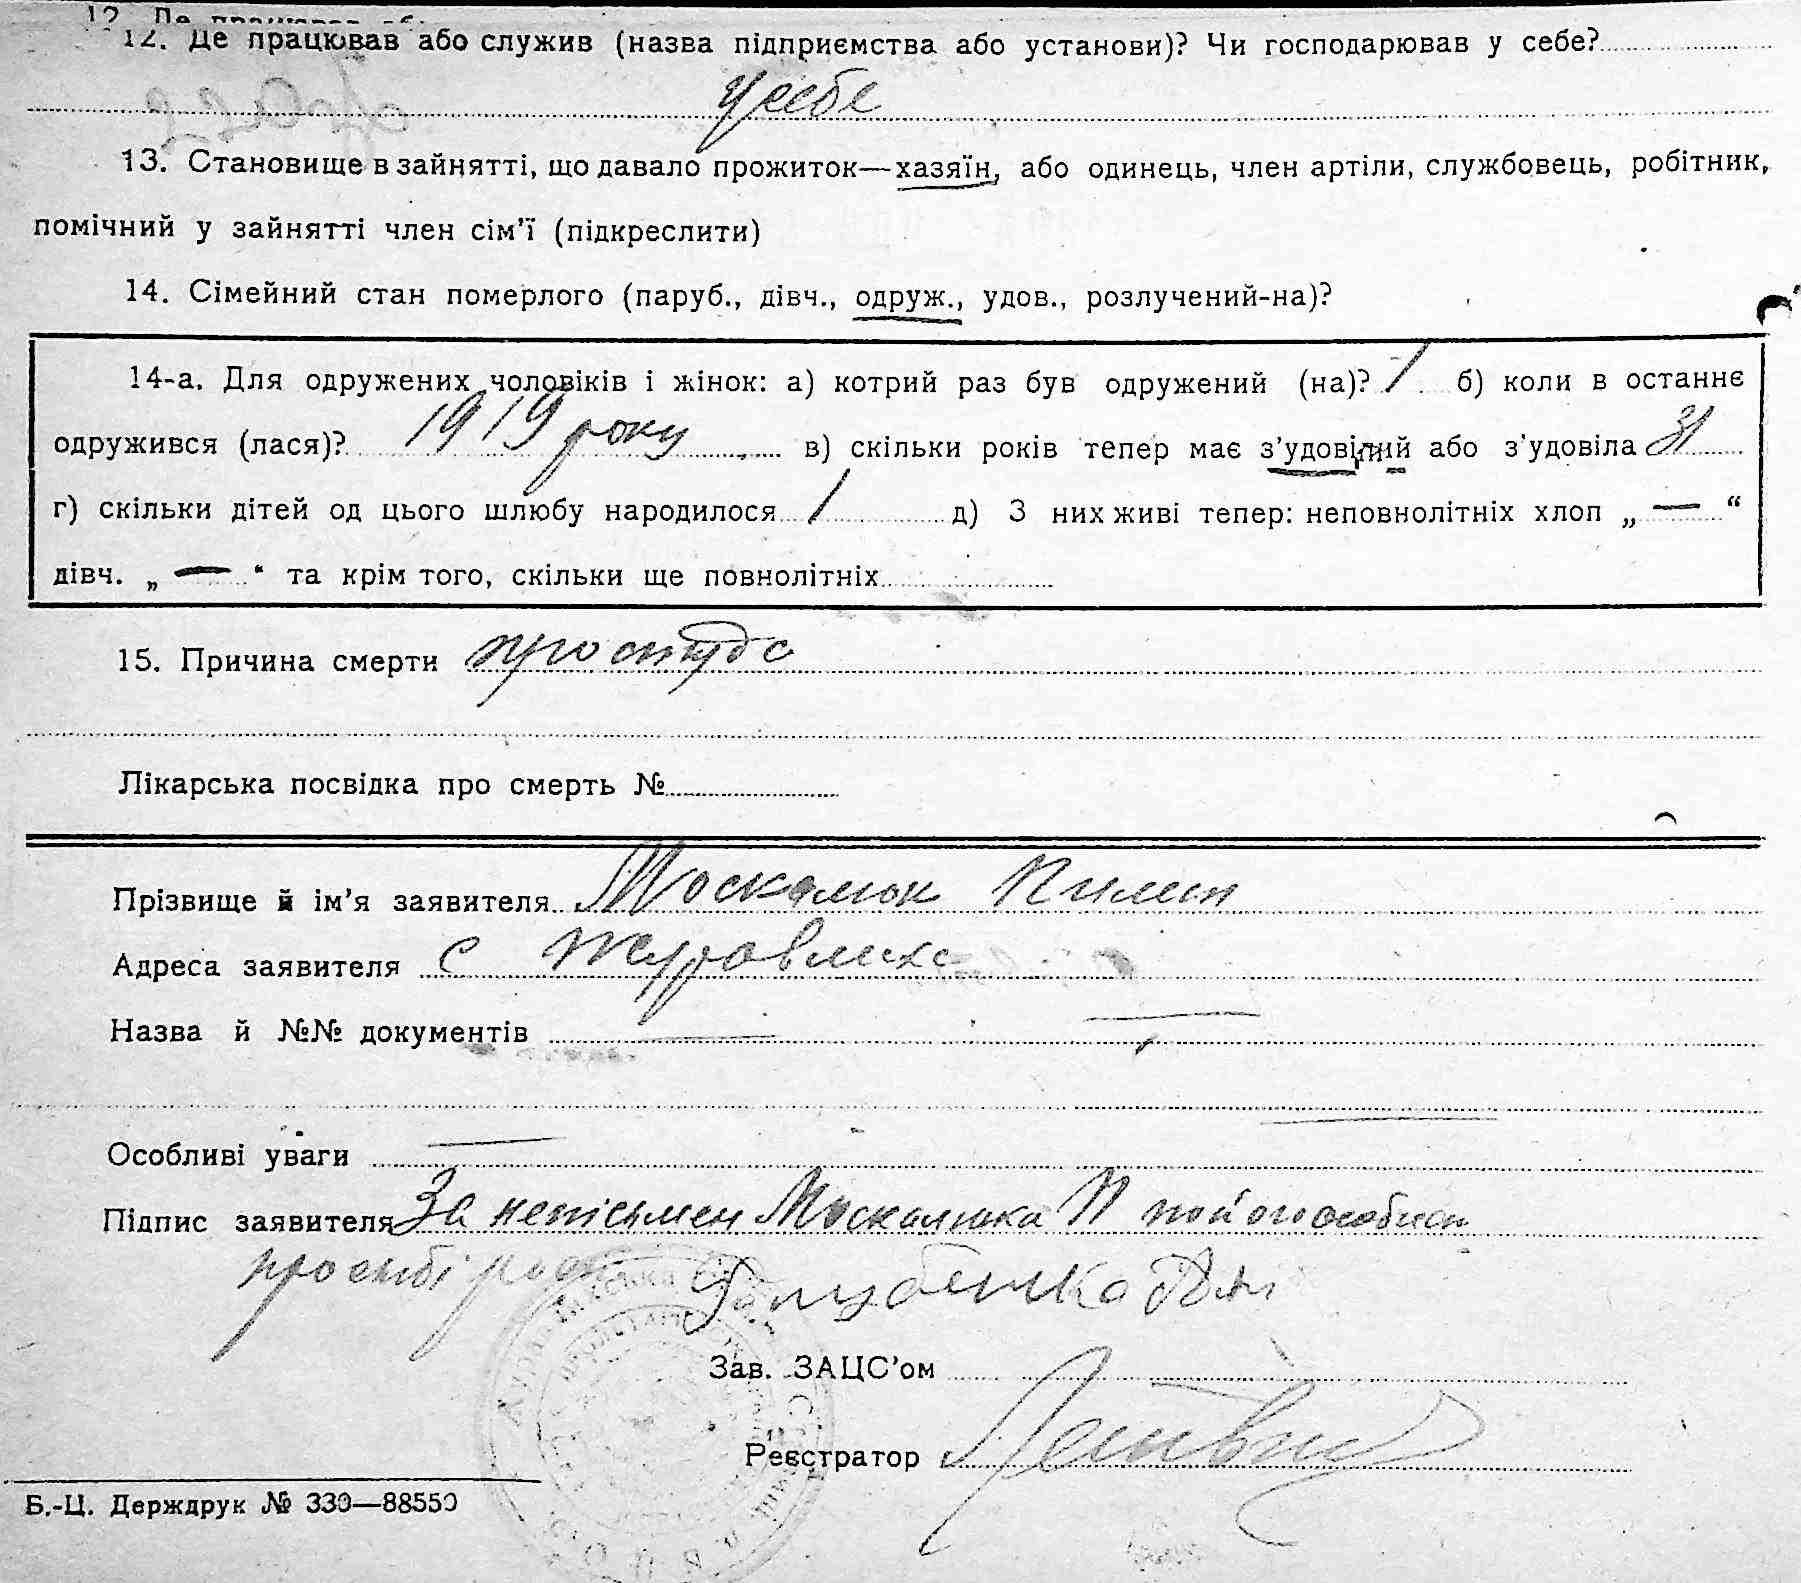 12. Де працював або служив (назва підприємства або установи)? Чи господарював у себе?
У себе
13. Становище в зайнятті, що давало прожиток—хазяїн, або одинець, член артіли, службовець, робітник,
помічний у зайнятті член сім’ї (підкреслити)
14. Сімейний стан померлого (паруб., дівч., одруж., удов., розлучений-на)?
14-а. Для одружених чоловіків і жінок: а) котрий раз був одружений (на)? 1 б) коли в останнє
одружився (лася)? 1919 року в) скільки років тепер має з’удовілий або з’удовіла 31
г) скільки дітей од цього шлюбу народилося 1 д) З них живі тепер: неповнолітніх хлоп „ — “
дівч. „ — “ та крім того, скільки ще повнолітніх
15. Причина смерти простуда
Лікарська посвідка про смерть №
Прізвище й ім’я заявителя Москалюк Пилип
Адреса заявителя с Журавлиха
Назва й №№ документів —
Особливі уваги —
Підпис заявителя За непісьмен Москалюка П по його особист
просьбі
Зав. ЗАЦС’ом
Реєстратор
Б.-Ц. Держдрук № 330—88550